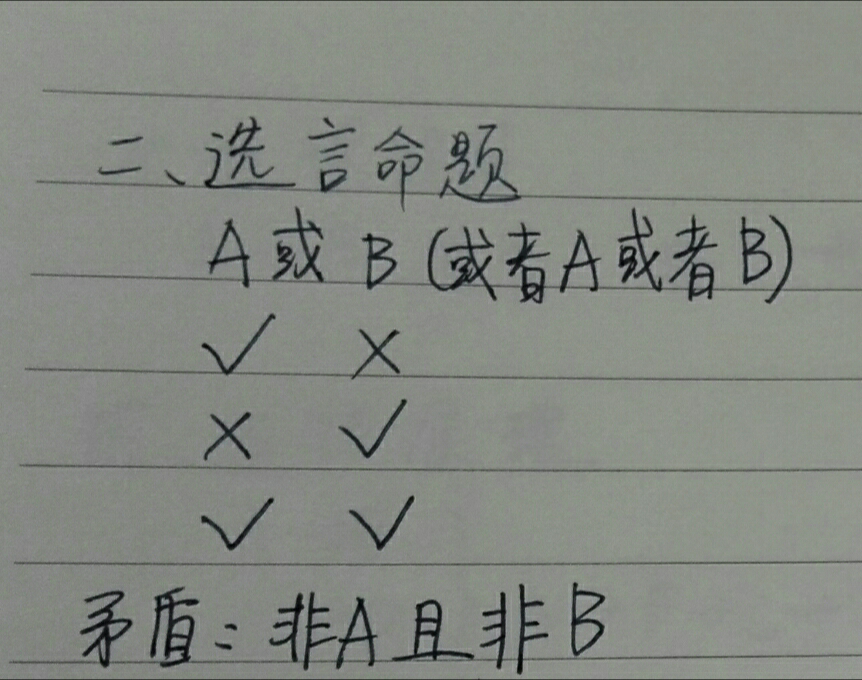 二、选言命题
A或B(或者A或者B)
✓ ×
× ✓
✓ ✓
矛盾：非A且非B